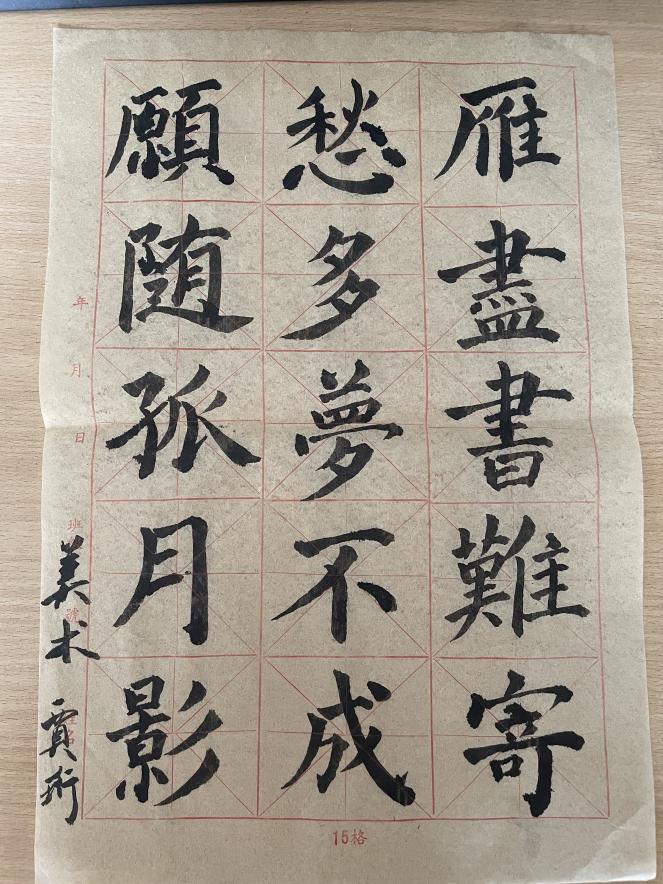 雁盡書難寄
愁多夢不成
願随孤月影
年 月 日
班 號
姓名
美术 賈珩
15格